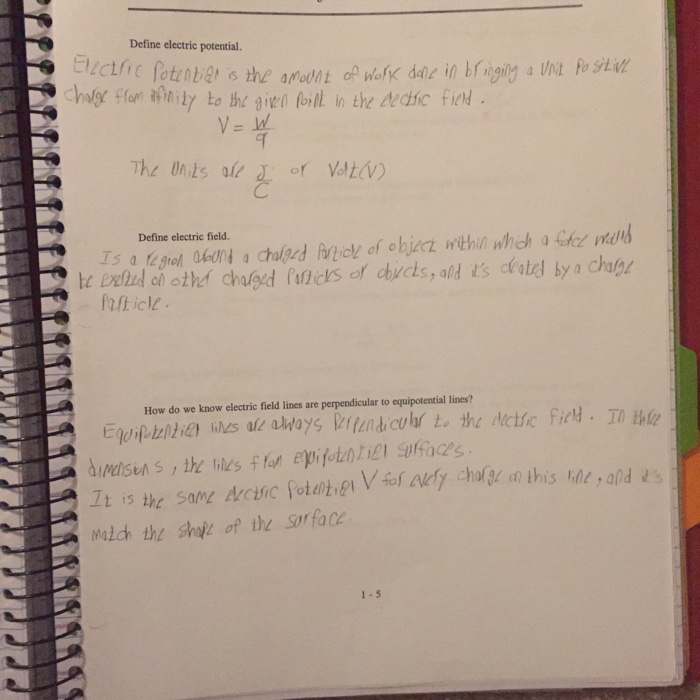 Define electric potential.
Electric Potential is the amount of work done in bringing a unit Positive
charge from infinity to the given Point in the electric field.
V = W
q
The Units are J or Volt(V)
C
Define electric field.
Is a region around a charged Particle or object within which a force would
be exerted on other charged Particles or objects, and it's created by a charge
Particle.
How do we know electric field lines are perpendicular to equipotential lines?
Equipotential lines are always Perpendicular to the electric field. In three
dimensions, the lines from equipotentiel surfaces.
It is the same electric Potential V for every charge on this line, and it's
match the shape of the surface.
1 - 5